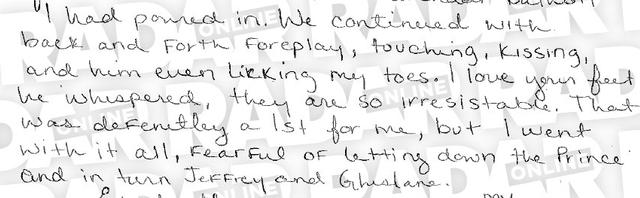 "I had poured in. We continued with
back and forth foreplay, touching, kissing,
and him even licking my toes. I love your feet
he whispered, they are so irresistable. That
was defenitley a 1st for me, but I went
with it all, fearful of letting down the Prince
and in turn Jeffrey and Ghislane.
RADAR ONLINE